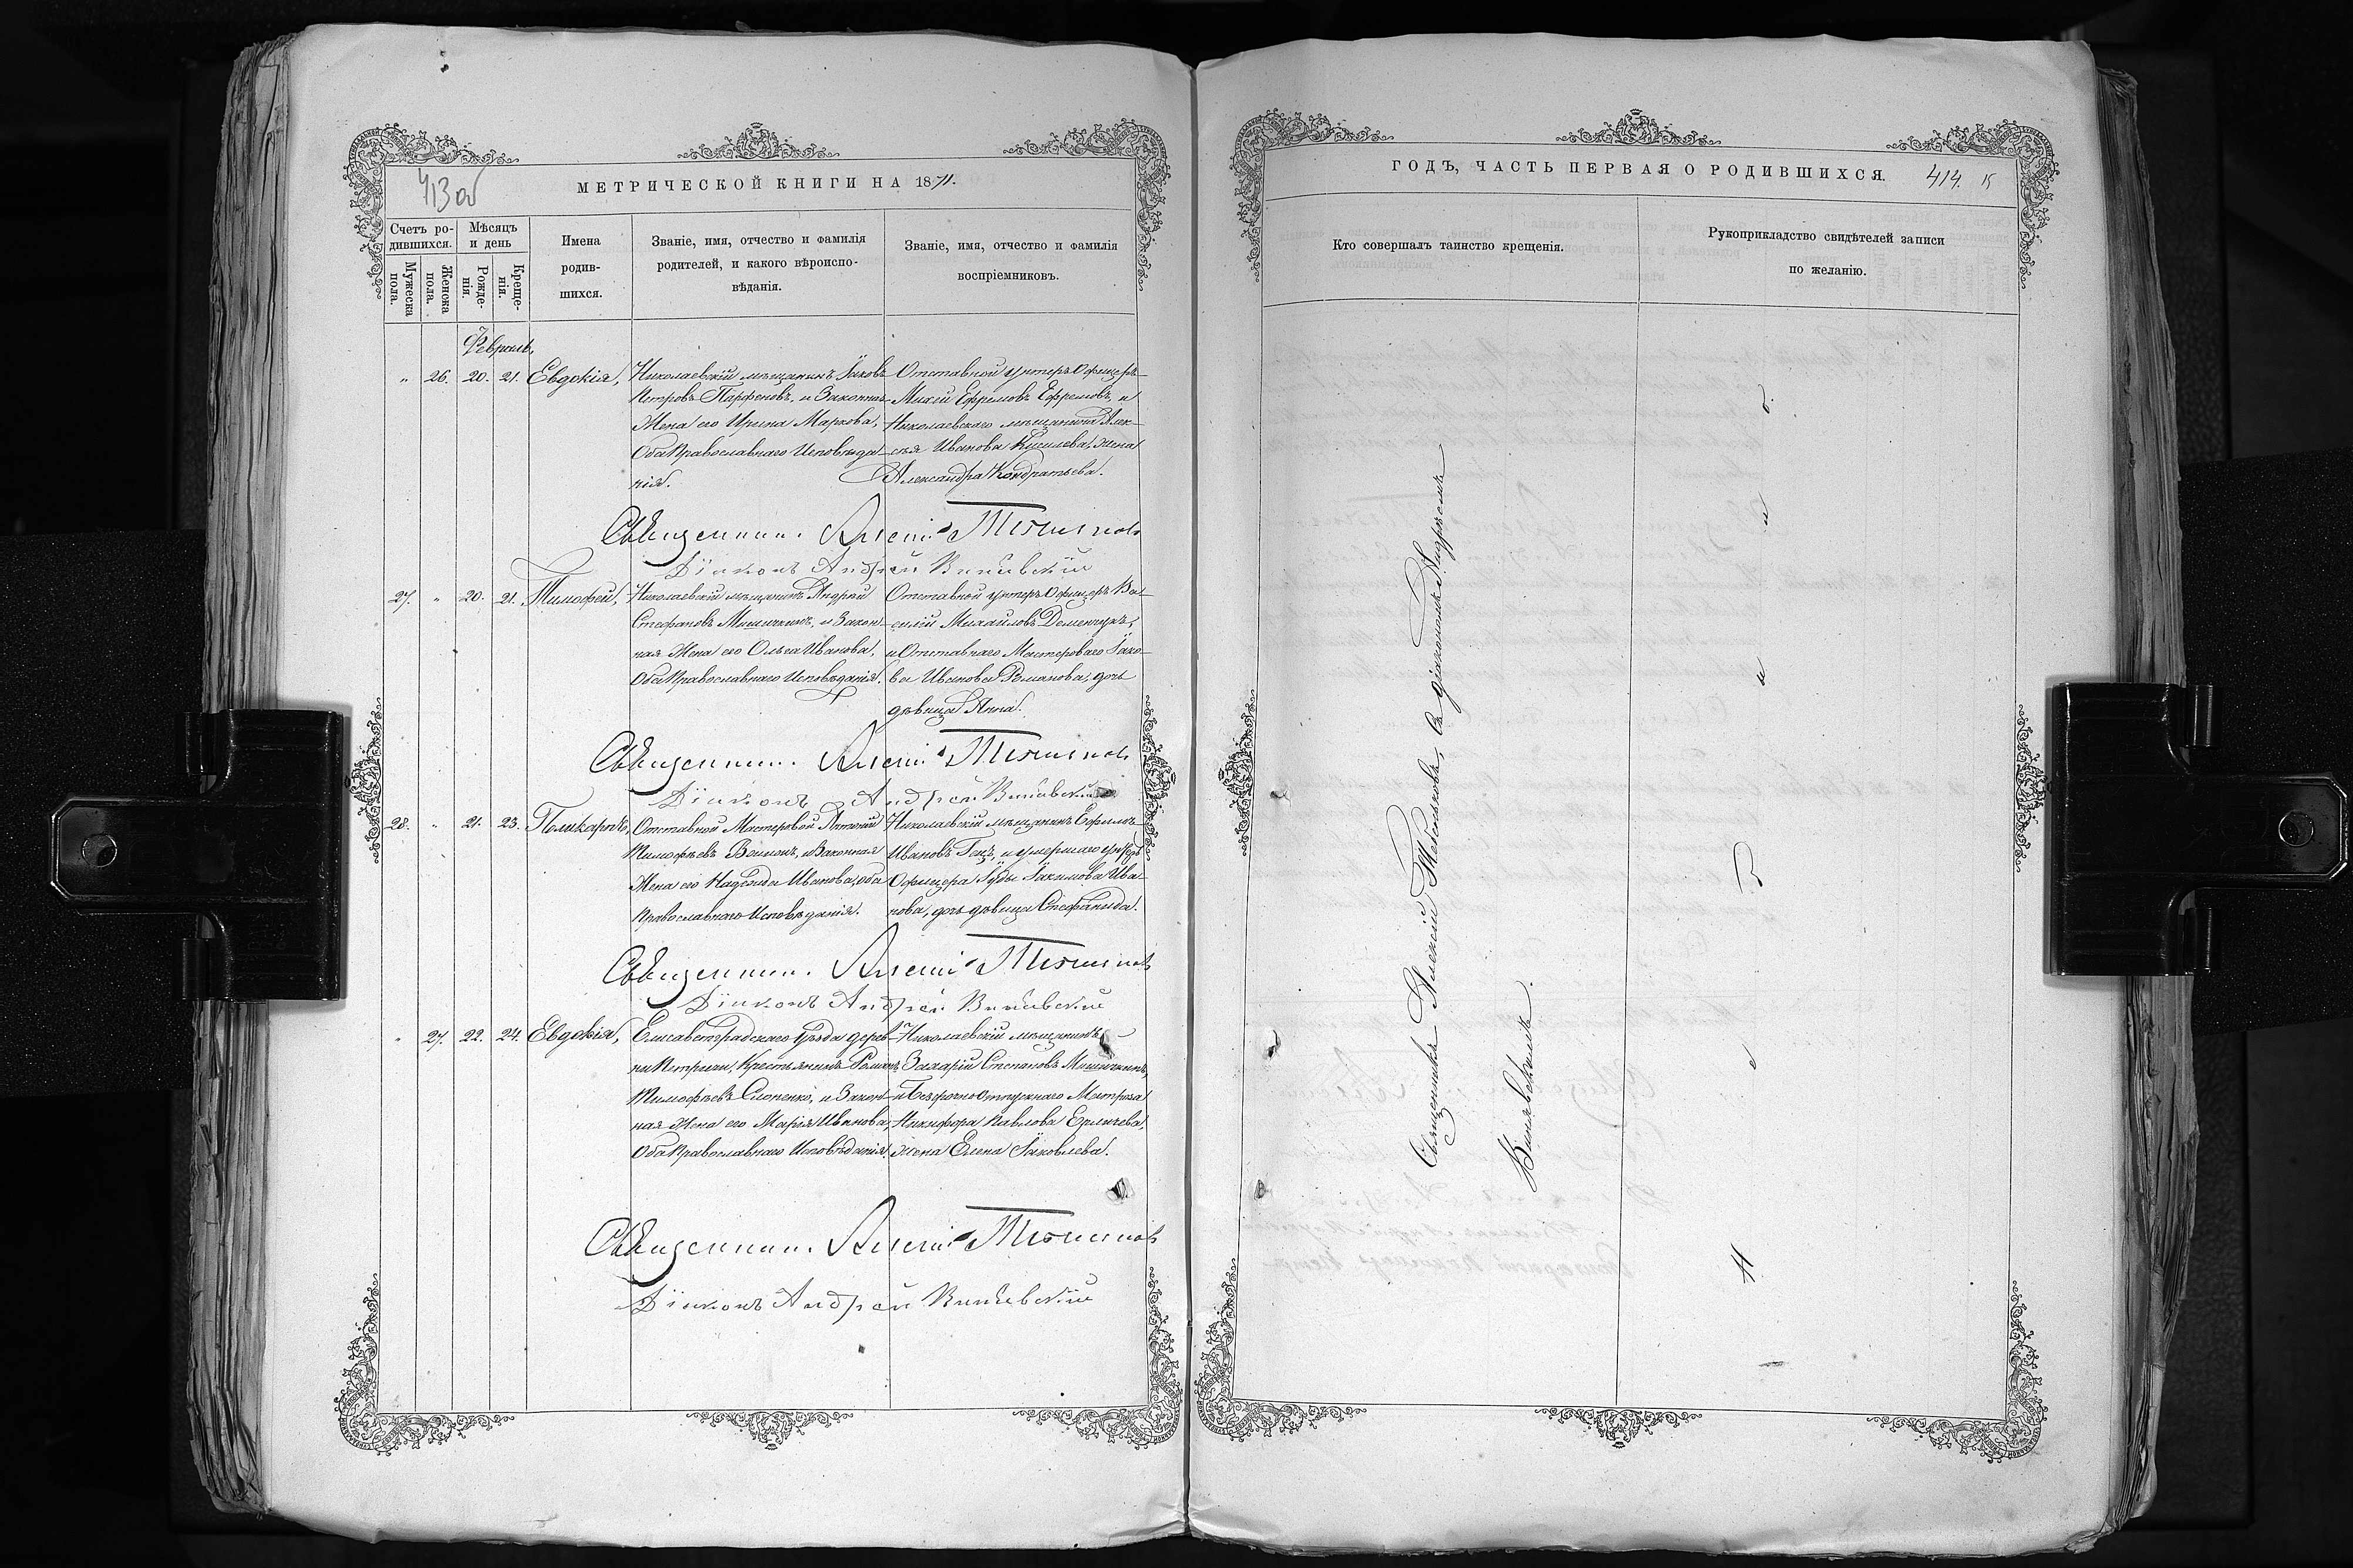 413 об
МЕТРИЧЕСКОЙ КНИГИ НА 1871.
Счетъ ро-
дившихся.
Мужеска
пола.
Женска
пола.
Мѣсяцъ
и день
Рожде-
нія.
Креще-
нія.
Имена
родив-
шихся.
Званіе, имя, отчество и фамилія
родителей, и какого вѣроиспо-
вѣданія.
Званіе, имя, отчество и фамилія
воспріемниковъ.
Февраль,
" 26. 20. 21. Евдокія,
Николаевскій мѣщанинъ Іаковъ
Петровъ Парфеновъ, и Законная
Жена его Ирина Маркова,
Оба Православнаго Исповѣда-
нія.
Отставной унтеръ Офицеръ
Ефремовъ Ефремовъ, и
Николаевскаго мѣщанина Алек-
сѣя Иванова Киселева, жена
Александра Кондратьева.
Священник Алексій
Діаконъ Андрей
27. " 20. 21. Тимофей,
Николаевскій мѣщанинъ Андрей
Стефановъ Мишичкинъ, и Закон-
ная Жена его Ольга Иванова,
Оба Православнаго Исповѣданія.
Отставной унтеръ Офицеръ Ва-
силій Михайловъ Деменчукъ,
и Отставнаго Мастероваго Іако-
ва Иванова Романова, дочь
дѣвица Анна.
Священник Алексій
Діаконъ Андрей
28. " 21. 23. Поликарпъ,
Отставной Мастеровой Антоній
Тимофѣевъ и Законная
Жена его Надежда Иванова, оба
Православнаго Исповѣданія.
Николаевскій мѣщанинъ
Ивановъ и умершаго унтеръ
Офицера Іуды Іакимова Ива-
нова, дочь дѣвица Стефанида.
Священник Алексій
Діаконъ Андрей
" 27. 22. 24. Евдокія,
Елисаветградскаго уѣзда дерев-
ни Крестьянинъ Романъ
Тимофѣевъ Слопенко, и Закон-
ная Жена его Марія Иванова,
Оба Православнаго Исповѣданія.
Николаевскій мѣщанинъ
Захарій Степановъ Мишичкинъ,
и Безсрочноотпускнаго Матроза
Никифора Павлова Ерличева,
жена Елена Іаковлева.
Священник Алексій
Діаконъ Андрей
ГОДЪ, ЧАСТЬ ПЕРВАЯ О РОДИВШИХСЯ.
414. 15
Кто совершалъ таинство крещенія.
Рукоприкладство свидѣтелей записи
по желанію.
Священникъ Алексій съ діакономъ Андреемъ